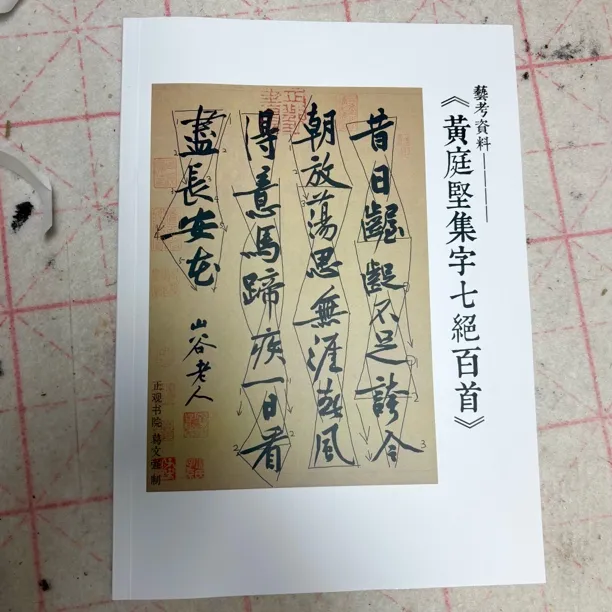 藝考資料————
《黃庭堅集字七絕百首》
昔日齷齪不足誇今
朝放蕩思無涯春風
得意馬蹄疾一日看
盡長安花
山谷老人
正观书院 葛文 制